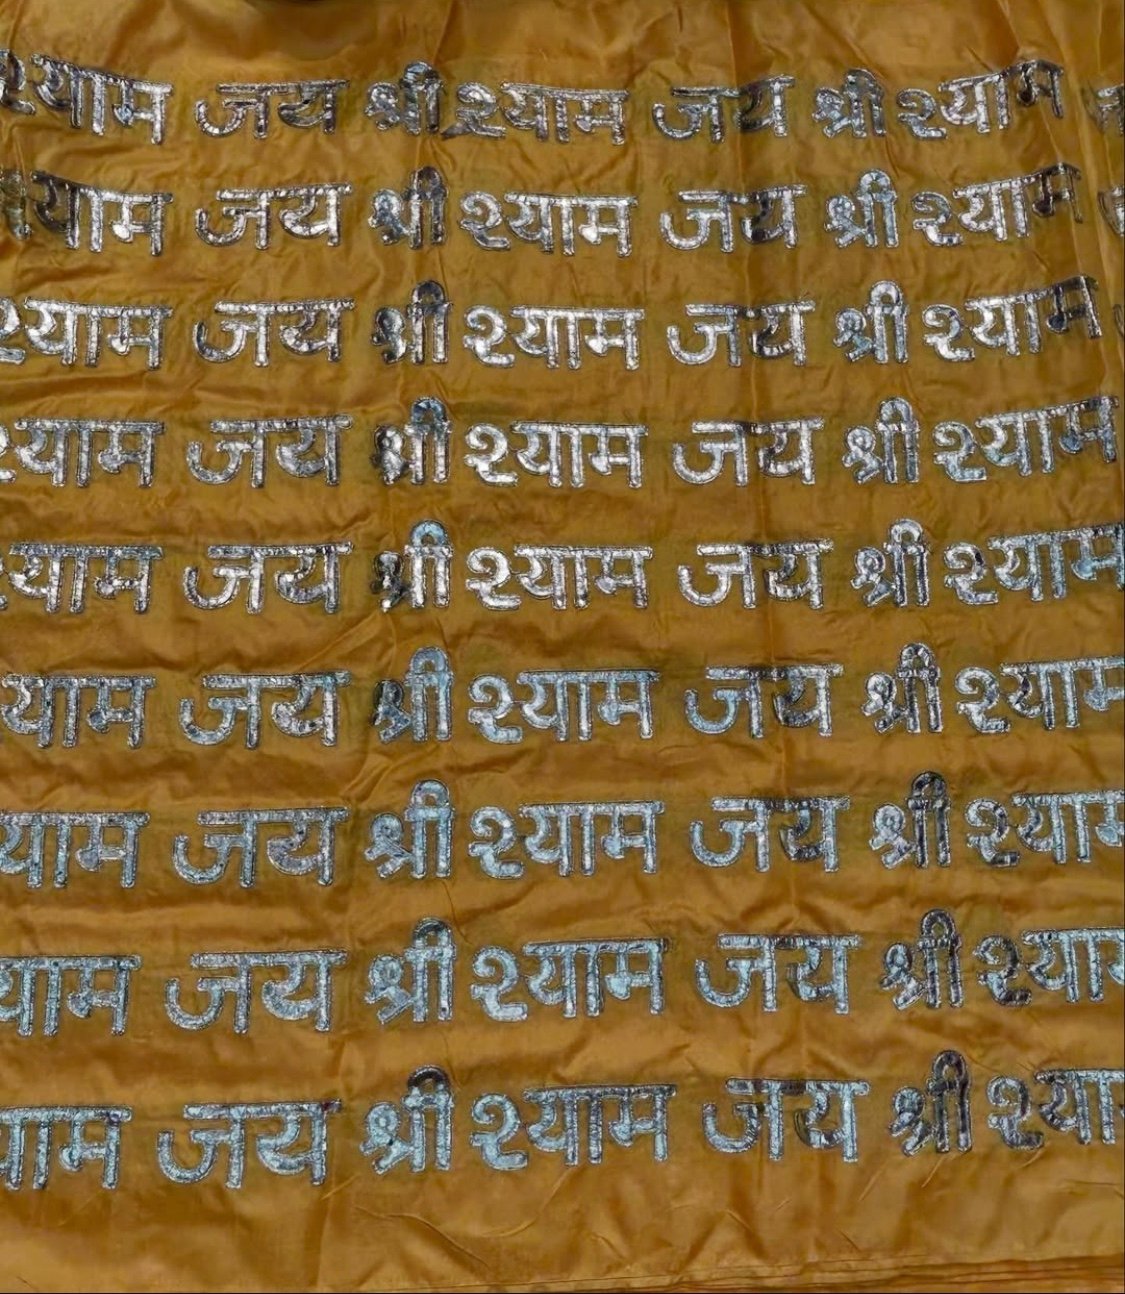 श्याम जय श्री श्याम जय श्री श्याम
याम जय श्री श्याम जय श्री श्याम
श्याम जय श्री श्याम जय श्री श्याम
श्याम जय श्री श्याम जय श्री श्याम
श्याम जय श्री श्याम जय श्री श्याम
याम जय श्री श्याम जय श्री श्याम
याम जय श्री श्याम जय श्री श्याम
याम जय श्री श्याम जय श्री श्याम
याम जय श्री श्याम जय श्री श्या